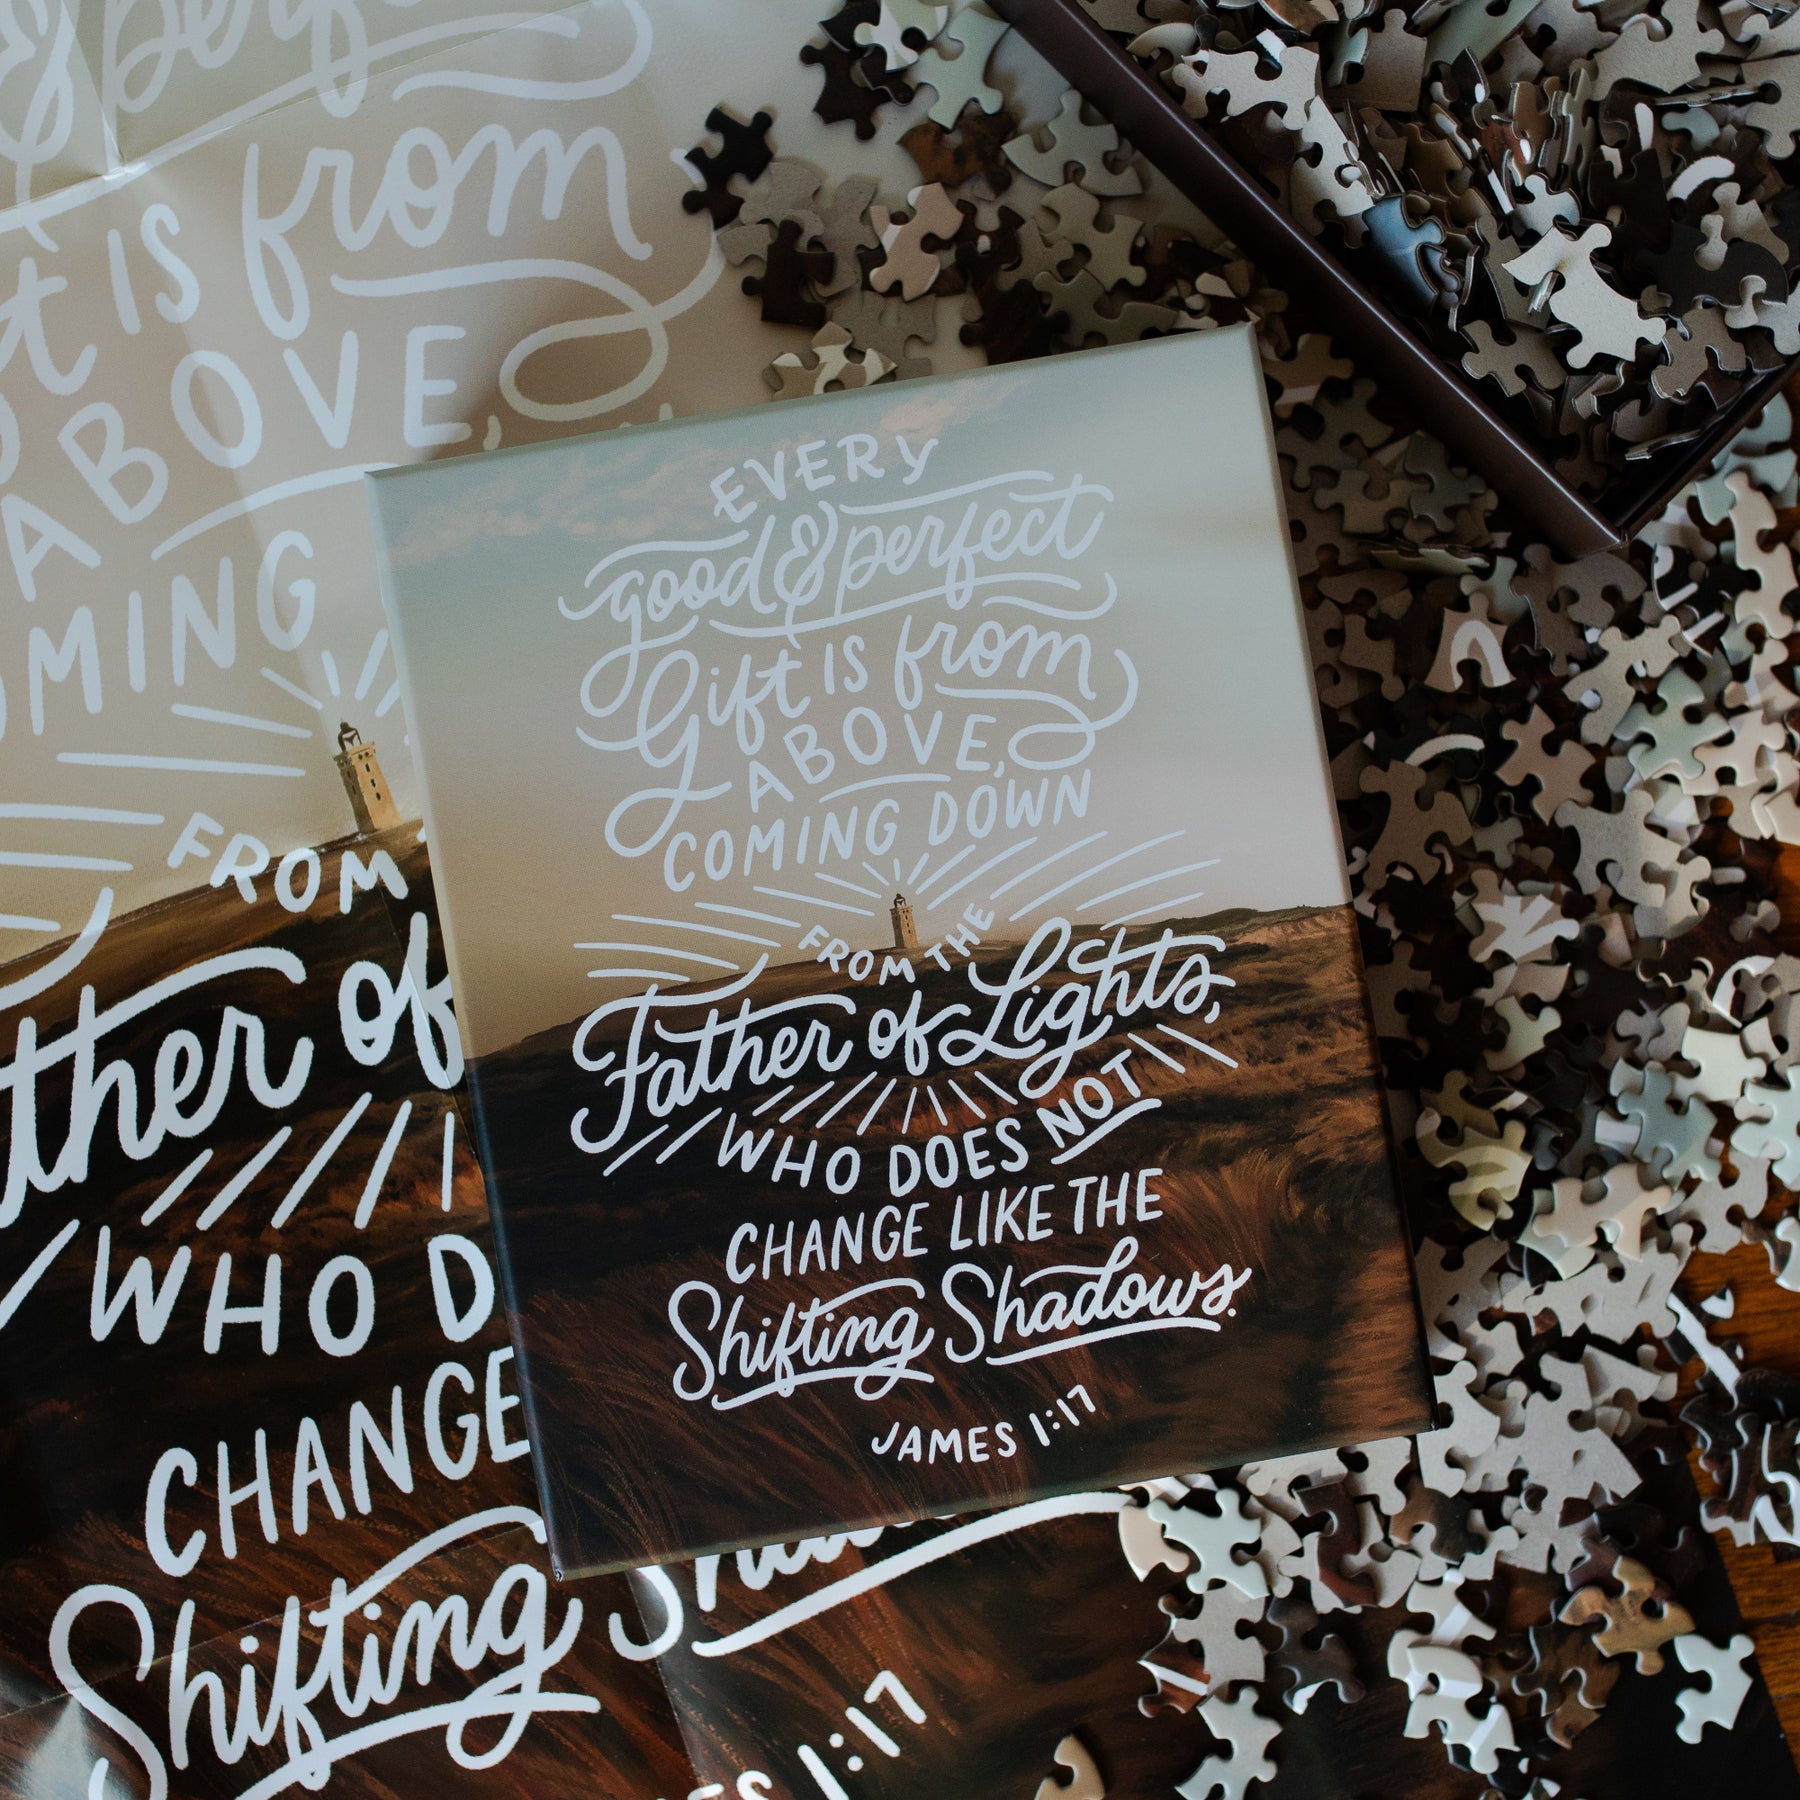 & perf
t is from
ABOVE,
OMING
FROM
ther of
WHO D
CHANGE
Shifting Shadow
ES 1:17
EVERY
good & perfect
Gift IS from
ABOVE,
COMING DOWN
FROM THE
Father of Lights,
WHO DOES NOT
CHANGE LIKE THE
Shifting Shadows.
JAMES 1:17